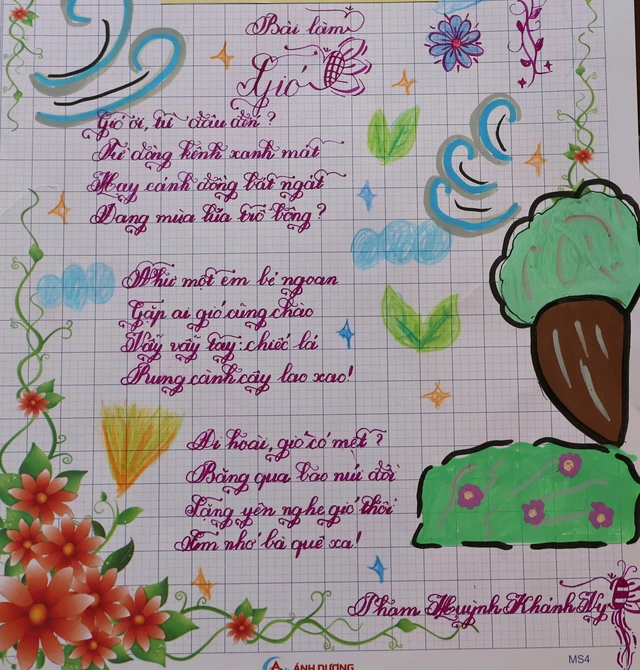 Bài làm
Gió
Gió ơi, từ đâu đến?
Từ dòng kênh xanh mát
Hay cánh đồng bát ngát
Đang mùa lúa trổ bông?
Như một em bé ngoan
Gặp ai gió cũng chào
Vẫy vẫy tay: chiếc lá
Rung cành cây lao xao!
Đi hoài, gió có mệt?
Băng qua bao núi đồi
Lặng yên nghe gió thổi
Em nhớ bà quê xa!
Phạm Huỳnh Khánh Vy
ÁNH DƯƠNG
MS4